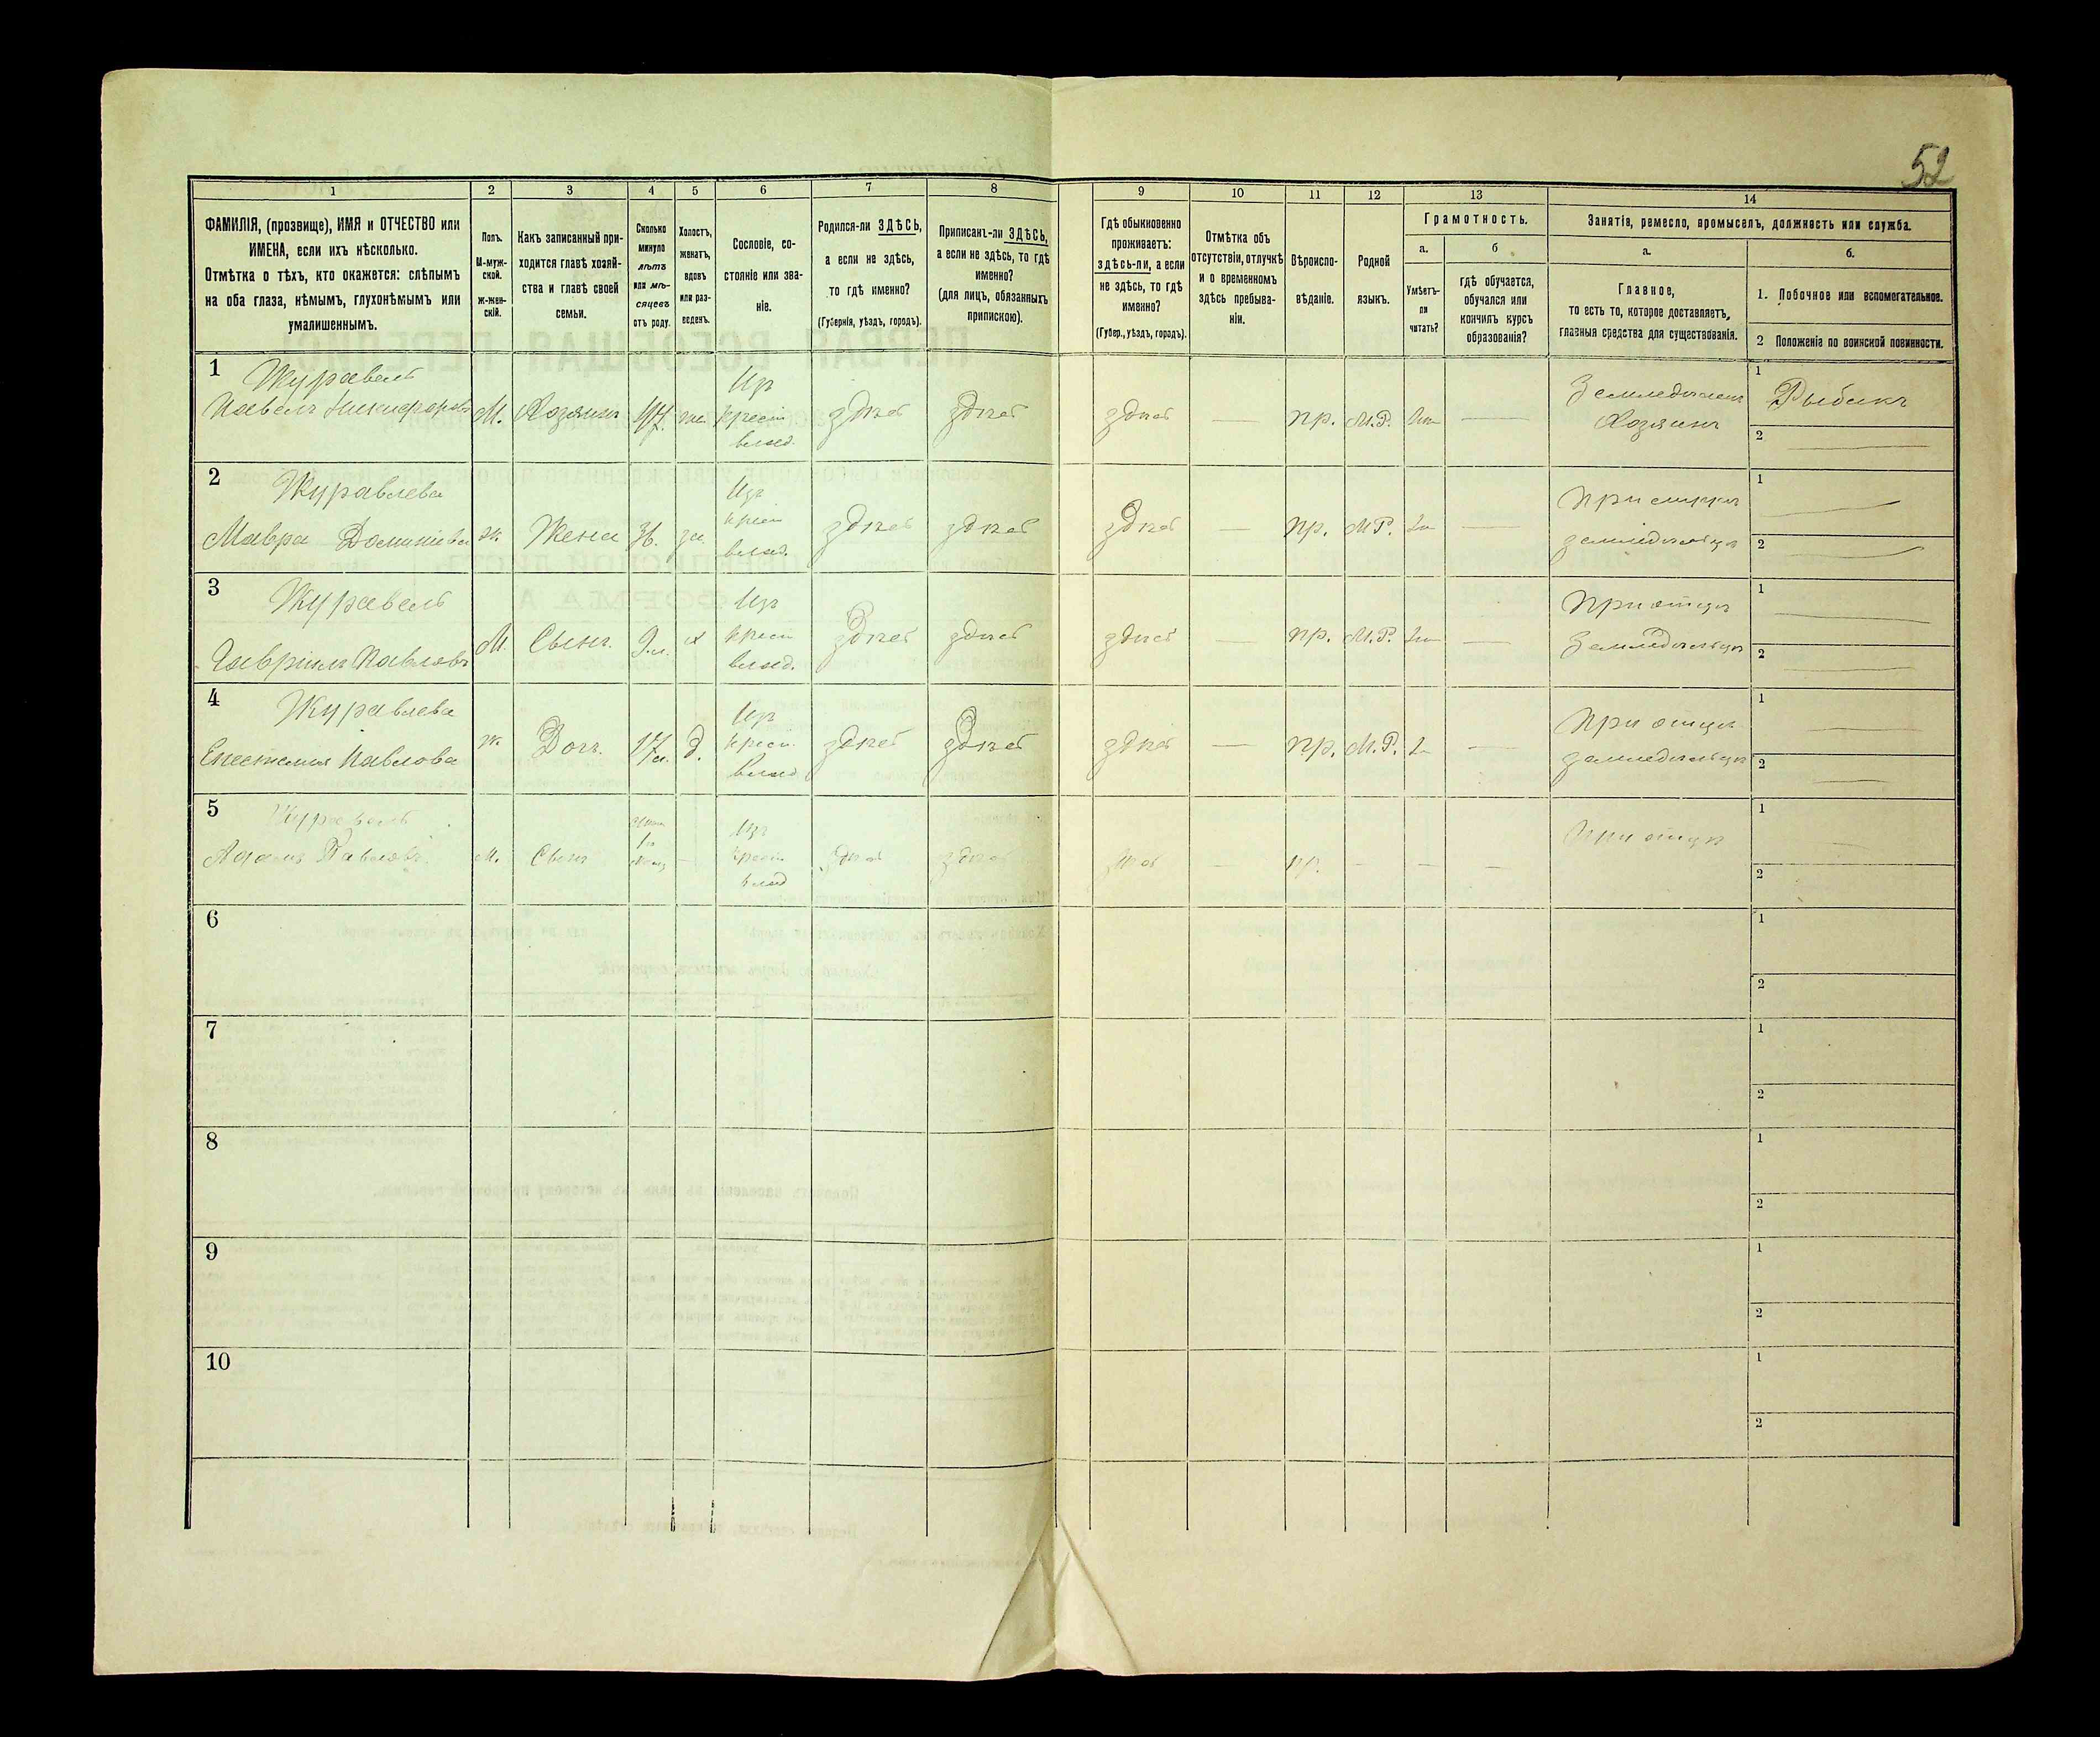 52
1 2 3 4 5 6 7 8 9 10 11 12 13 14
ФАМИЛІЯ, (прозвище), ИМЯ и ОТЧЕСТВО или
ИМЕНА, если ихъ нѣсколько.
Отмѣтка о тѣхъ, кто окажется: слѣпымъ
на оба глаза, нѣмымъ, глухонѣмымъ или
умалишеннымъ.
Полъ.
М-муж-
ской.
Ж-жен-
скій.
Какъ записанный при-
ходится главѣ хозяй-
ства и главѣ своей
семьи.
Сколько
минуло
лѣтъ
или мѣ-
сяцевъ
отъ роду.
Холостъ,
женатъ,
вдовъ
или раз-
веденъ.
Сословіе, со-
стояніе или зва-
ніе.
Родился-ли ЗДѢСЬ,
а если не здѣсь,
то гдѣ именно?
(Губернія, уѣздъ, городъ).
Приписанъ-ли ЗДѢСЬ,
а если не здѣсь, то гдѣ
именно?
(для лицъ, обязанныхъ
припискою).
Гдѣ обыкновенно
проживаетъ:
здѣсь-ли, а если
не здѣсь, то гдѣ
именно?
(Губер., уѣздъ, городъ).
Отмѣтка объ
отсутствіи, отлучкѣ
и о временномъ
здѣсь пребыва-
ніи.
Вѣроиспо-
вѣданіе.
Родной
языкъ.
Грамотность.
а.
Умѣетъ-
ли
читать?
б
гдѣ обучается,
обучался или
кончилъ курсъ
образованія?
Занятія, ремесло, промыселъ, должность или служба.
а.
Главное,
то есть то, которое доставляетъ,
главныя средства для существованія.
б.
1. Побочное или вспомогательное.
2 Положеніе по воинской повинности.
1 Журавель
Павелъ Никифоровъ М. Хозяинъ 47. жен Изъ крест влад. здѣсь здѣсь здѣсь — пр. М.Р. — Земледѣлецъ Хозяинъ 1 Рыбакъ
2
2 Журавлева
Мавра ж. Жена за. Изъ крест влад. здѣсь здѣсь здѣсь — пр. М.Р. — При мужѣ земледѣльцѣ 1
2
3 Журавель
Гавріилъ Павловъ М. Сынъ. 9.л. х Изъ крест влад. здѣсь здѣсь здѣсь — пр. М.Р. — При отцѣ Земледѣльцѣ 1
2
4 Журавлева
Павлова ж. Дочь. д. Изъ крест. влад здѣсь здѣсь здѣсь — пр. М.Р. — При отцѣ земледѣльцѣ 1
2
5 Журавель
Павловъ. м. Сынъ — Изъ крест влад здѣсь здѣсь здѣсь — пр. — — — При отцѣ 1
2
6 1
2
7 1
2
8 1
2
9 1
2
10 1
2